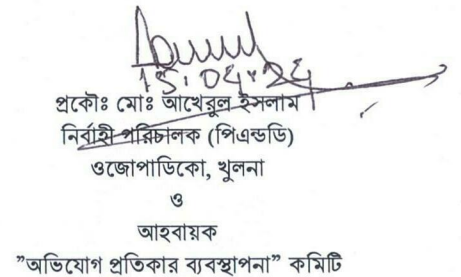 প্রকৌঃ মোঃ আখেরুল ইসলাম
নির্বাহী পরিচালক (পিএন্ডডি)
ওজোপাডিকো, খুলনা
ও
আহবায়ক
”অভিযোগ প্রতিকার ব্যবস্থাপনা” কমিটি